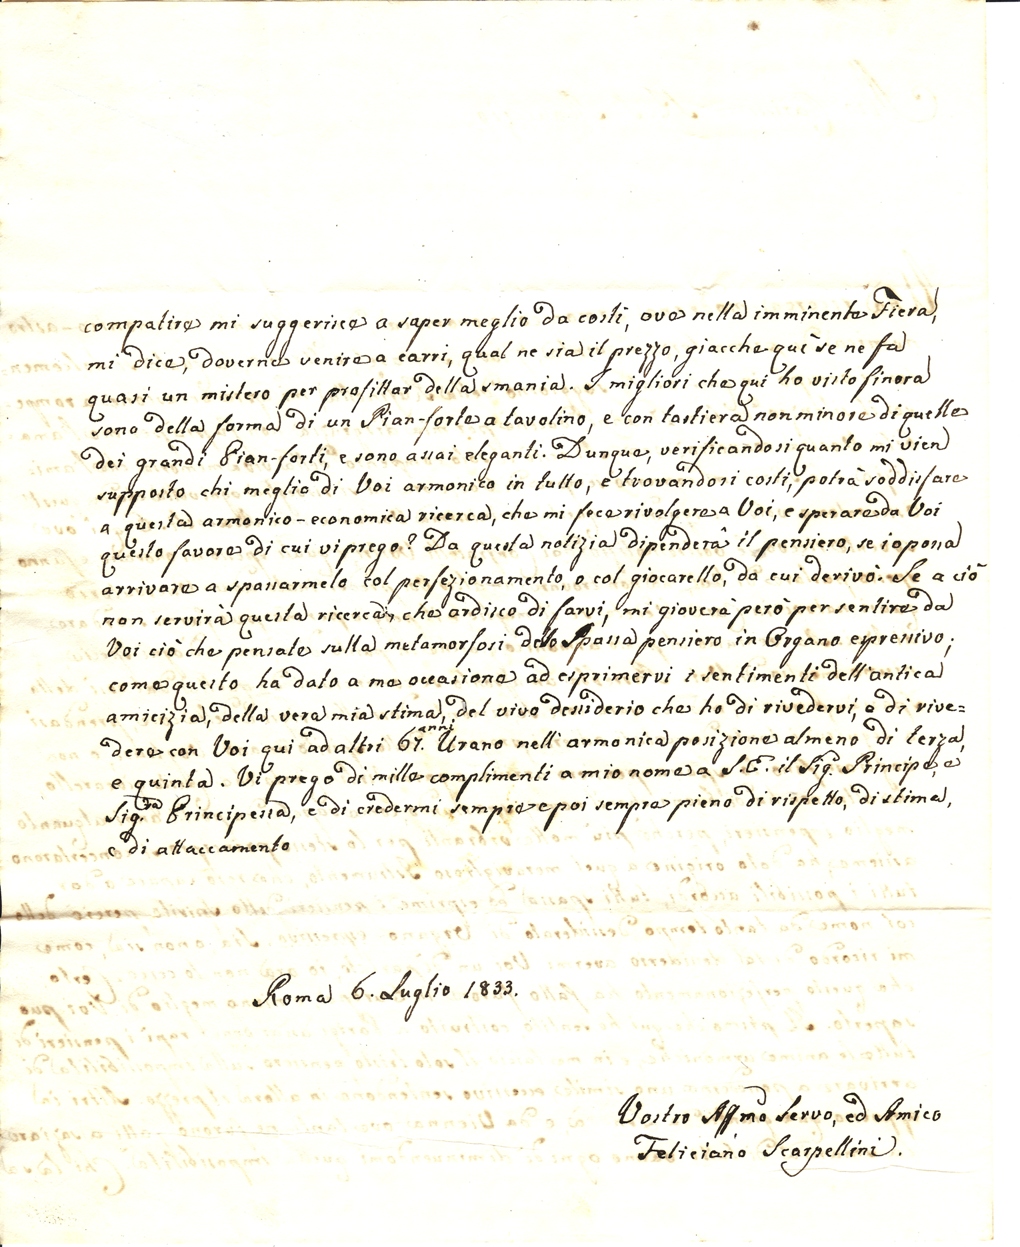 compatire mi suggerisce a saper meglio da costì, ove nella imminente Fiera,
mi dice, doverne venire a carri, qual ne sia il prezzo, giacche quì se ne fa
quasi un mistero per profittar della smania. I migliori che qui ho visto finora
sono della forma di un Pian-forte a tavolino, e con tastiera non minore di quelle
dei grandi Pian-forti, e sono assai eleganti. Dunque, verificandosi quanto mi vien
supposto chi meglio di Voi armonico in tutto, e trovandosi costì, potrà soddisfare
a questa armonico-economica ricerca, che mi fece rivolgere a Voi, e sperare da Voi
questo favore di cui vi prego? Da questa notizia dipenderà il pensiero, se io possa
arrivare a spassarmelo col perfezionamento, o col giocarello, da cui derivò. Se a ciò
non servirà questa ricerca, che ardisco di farvi, mi gioverà però per sentire da
Voi ciò che pensate sulla metamorfosi dello Spassa pensiero in Organo espressivo;
come questo ha dato a me occasione ad esprimervi i sentimenti dell'antica
amicizia, della vera mia stima, del vivo desiderio che ho di rivedervi, o di rive=
dere con Voi qui ad altri 67. anni Urano nell'armonica posizione almeno di terza,
e quinta. Vi prego di mille complimenti a mio nome a S.E. il Sig. Principe, e
Sig.ra Principessa, e di credermi sempre e poi sempre pieno di rispetto, di stima,
e di attaccamento
Roma 6. Luglio 1833.
Vostro Affmo Servo, ed Amico
Feliciano Scarpellini.